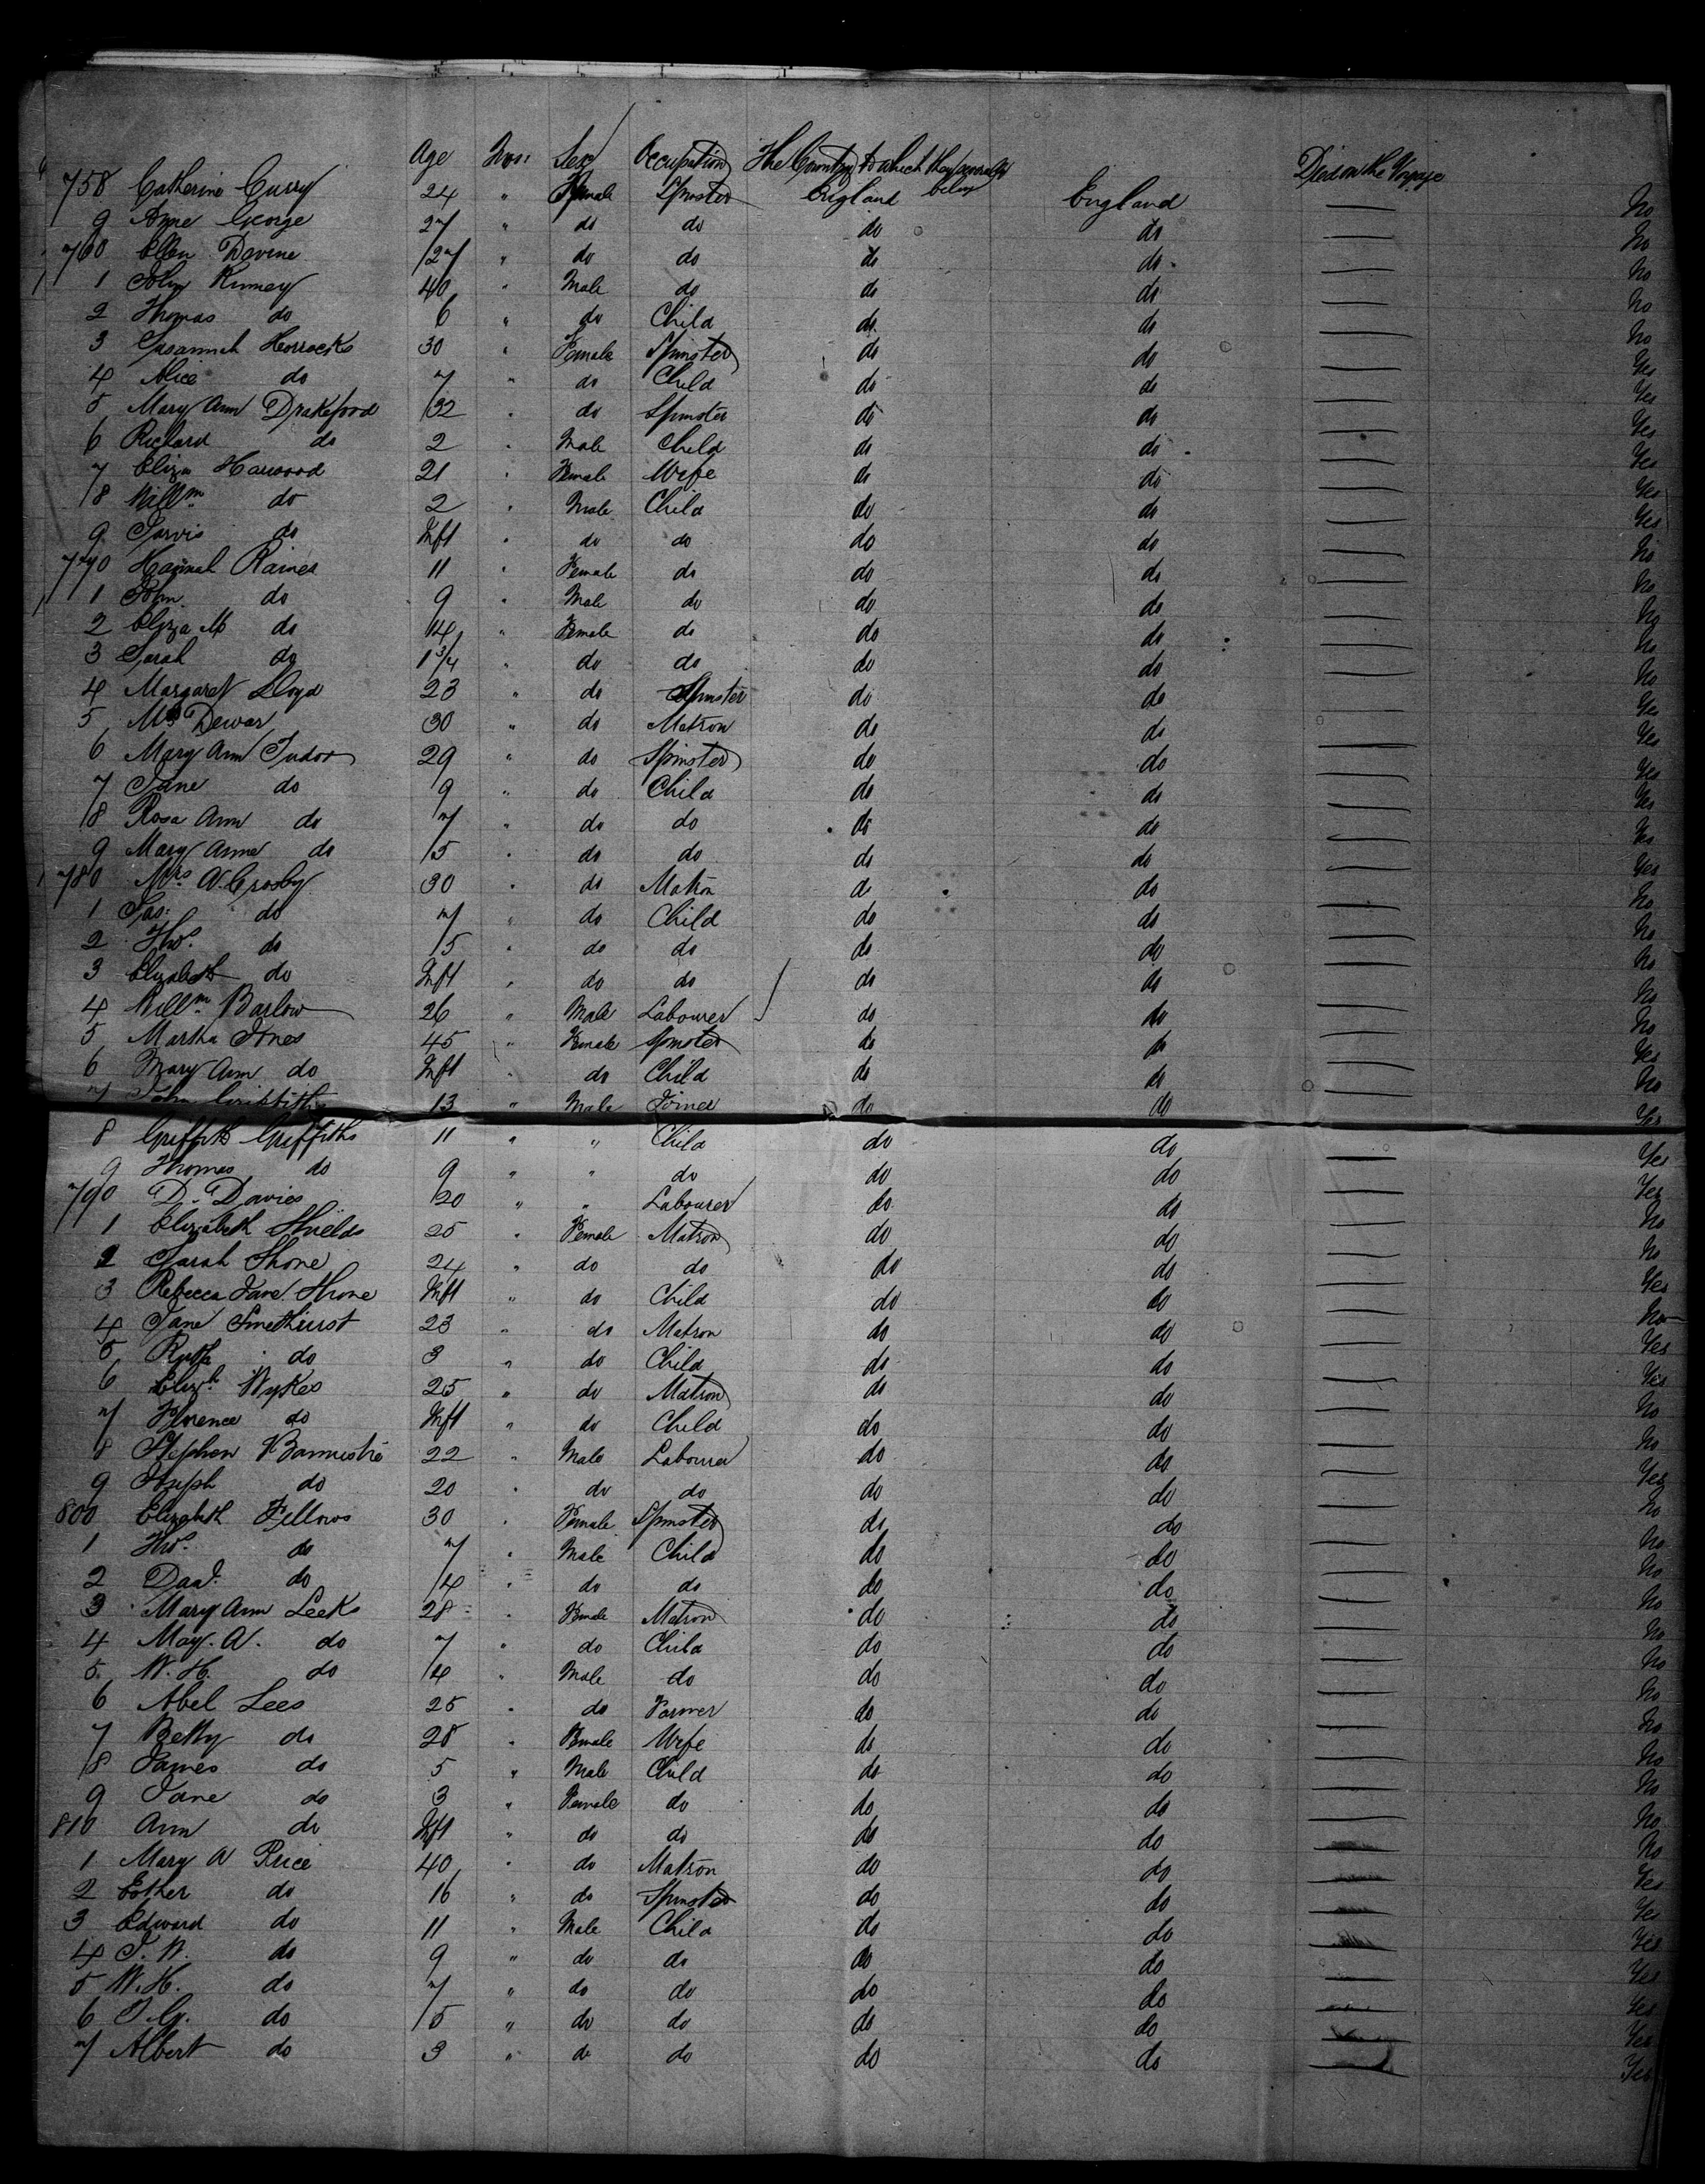 Age Mos: Sex Occupation The Country to which they severally belong Died on the Voyage
758 Catherine Curry 24 " Female Spinster England England — No
9 Anne George 27 " do do do do — No
760 Ellen Devine 27 " do do do do — No
1 John Kinney 40 " Male do do do — No
2 Thomas do 6 " do Child do do — No
3 Susannah Horrocks 30 " Female Spinster do do — Yes
4 Alice do 7 " do Child do do — Yes
5 Mary Ann Drakeford 32 " do Spinster do do — Yes
6 Richard do 2 " Male Child do do — Yes
7 Eliza Harwood 21 " Female Wife do do — Yes
8 Willm do 2 " Male Child do do — Yes
9 Jarvis do Inft " do do do do — No
770 Hannah Raines 11 " Female do do do — No
1 John do 9 " Male do do do — No
2 Eliza M do 4 " Female do do do — No
3 Sarah do 1 3/4 " do do do do — No
4 Margaret Lloyd 23 " do Spinster do do — Yes
5 Mrs Dewar 30 " do Matron do do — Yes
6 Mary Ann Tudor 29 " do Spinster do do — Yes
7 Jane do 9 " do Child do do — Yes
8 Rosa Ann do 7 " do do do do — Yes
9 Mary Anne do 5 " do do do do — Yes
780 Mrs A. Crosby 30 " do Matron do do — No
1 Jas: do 7 " do Child do do — No
2 Thos. do 5 " do do do do — No
3 Elizabeth do Inft " do do do do — No
4 Willm Barlow 26 " Male Labourer do do — No
5 Martha Jones 45 " Female Spinster do do — Yes
6 Mary Ann do Inft " do Child do do — No
7 John Griffiths 13 " Male Joiner do do — Yes
8 Griffith Griffiths 11 " " Child do do — Yes
9 Thomas do 9 " " do do do — Yes
790 D. Davies 20 " " Labourer do do — No
1 Elizabeth Shields 25 " Female Matron do do — No
2 Sarah Shone 24 " do do do do — Yes
3 Rebecca Jane Shone Inft " do Child do do — No
4 Jane Smethurst 23 " do Matron do do — Yes
5 Ruth do 3 " do Child do do — Yes
6 Elizh Wykes 25 " do Matron do do — No
7 Florence do Inft " do Child do do — No
8 Stephen Bannister 22 " Male Labourer do do — Yes
9 Joseph do 20 " do do do do — No
800 Elizabeth Fellows 30 " Female Spinster do do — No
1 Thos. do 7 " Male Child do do — No
2 Dad. do 4 " do do do do — No
3 Mary Ann Leeks 28 " Female Matron do do — No
4 May. A. do 7 " do Child do do — No
5 W. H. do 4 " Male do do do — No
6 Abel Lees 25 " do Farmer do do — No
7 Betty do 28 " Female Wife do do — No
8 James do 5 " Male Child do do — No
9 Jane do 3 " Female do do do — No
810 Ann do Inft " do do do do — No
1 Mary A Price 40 " do Matron do do — Yes
2 Esther do 16 " do Spinster do do — Yes
3 Edward do 11 " Male Child do do — Yes
4 J. W. do 9 " do do do do — Yes
5 W. H. do 7 " do do do do — Yes
6 T. G. do 5 " do do do do — Yes
7 Albert do 3 " do do do do — Yes